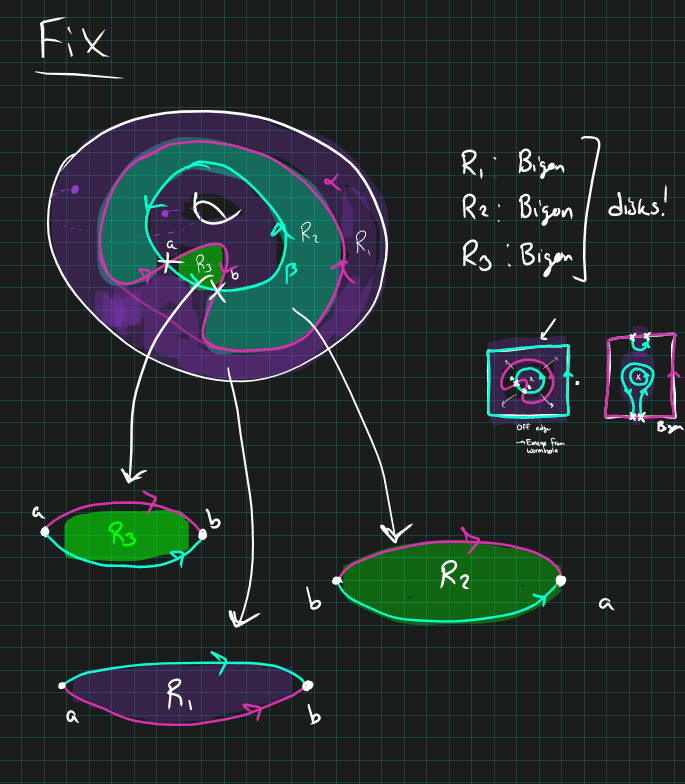 Fix
α
R₂
R₁
a
R₃
b
β
R₁ : Bigon
R₂ : Bigon
R₃ : Bigon
disks!
x
x
Off edge
→ Emerge from
wormhole
Bigon
a
R₃
b
R₂
b
a
R₁
a
b